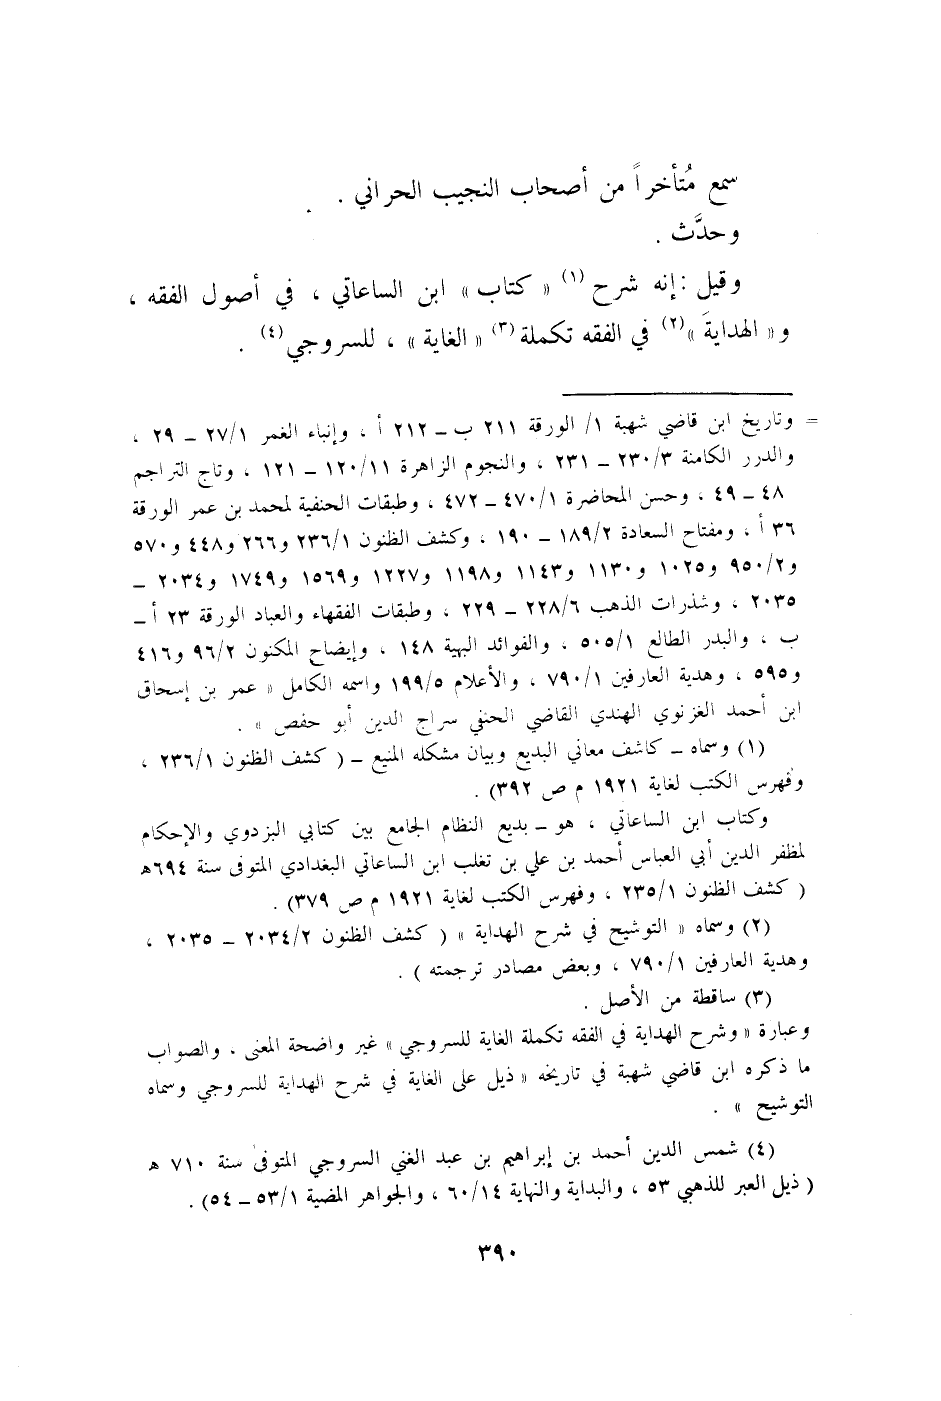 سمع مُتأخراً من أصحاب النجيب الحراني .
وحدَّث .
وقيل : إنه شرح (١) « كتاب » ابن الساعاتي ، في أصول الفقه ،
و« الهدايةَ »(٢) في الفقه تكملة(٣) « الغاية » ، للسروجي(٤) .
= وتاريخ ابن قاضي شهبة ١/ الورقة ٢١١ ب ــ ٢١٢ أ ، وإنباء الغمر ٢٧/١ ــ ٢٩ ،
والدرر الكامنة ٢٣٠/٣ ــ ٢٣١ ، والنجوم الزاهرة ١٢٠/١١ ــ ١٢١ ، وتاج التراجم
٤٨ ــ ٤٩ ، وحسن المحاضرة ٤٧٠/١ ــ ٤٧٢ ، وطبقات الحنفية لمحمد بن عمر الورقة
٣٦ أ ، ومفتاح السعادة ١٨٩/٢ ــ ١٩٠ ، وكشف الظنون ٢٣٦/١ و٢٦٦ و٤٤٨ و٥٧٠
و٩٥٠/٢ و١٠٢٥ و١١٣٠ و١١٤٣ و١١٩٨ و١٢٢٧ و١٥٦٩ و١٧٤٩ و٢٠٣٤ ــ
٢٠٣٥ ، وشذرات الذهب ٢٢٨/٦ ــ ٢٢٩ ، وطبقات الفقهاء والعباد الورقة ٢٣ أ ــ
ب ، والبدر الطالع ٥٠٥/١ ، والفوائد البهية ١٤٨ ، وإيضاح المكنون ٩٦/٢ و٤١٦
و٥٩٥ ، وهدية العارفين ٧٩٠/١ ، والأعلام ١٩٩/٥ واسمه الكامل « عمر بن إسحاق
ابن أحمد الغزنوي الهندي القاضي الحنفي سراج الدين أبو حفص » .
(١) وسماه ــ كاشف معاني البديع وبيان مشكله المنيع ــ ( كشف الظنون ٢٣٦/١ ،
وفهرس الكتب لغاية ١٩٢١ م ص ٣٩٢) .
وكتاب ابن الساعاتي ، هو ــ بديع النظام الجامع بين كتابي البزدوي والإحكام
لمظفر الدين أبي العباس أحمد بن علي بن تغلب ابن الساعاتي البغدادي المتوفى سنة ٦٩٤ه
( كشف الظنون ٢٣٥/١ ، وفهرس الكتب لغاية ١٩٢١ م ص ٣٧٩) .
(٢) وسماه « التوشيح في شرح الهداية » ( كشف الظنون ٢٠٣٤/٢ ــ ٢٠٣٥ ،
وهدية العارفين ٧٩٠/١ ، وبعض مصادر ترجمته ) .
(٣) ساقطة من الأصل .
وعبارة « وشرح الهداية في الفقه تكملة الغاية للسروجي » غير واضحة المعنى ، والصواب
ما ذكره ابن قاضي شهبة في تاريخه « ذيل على الغاية في شرح الهداية للسروجي وسماه
التوشيح » .
(٤) شمس الدين أحمد بن إبراهيم بن عبد الغني السروجي المتوفى سنة ٧١٠ ه
( ذيل العبر للذهبي ٥٣ ، والبداية والنهاية ٦٠/١٤ ، والجواهر المضية ٥٣/١ ــ ٥٤) .
٣٩٠